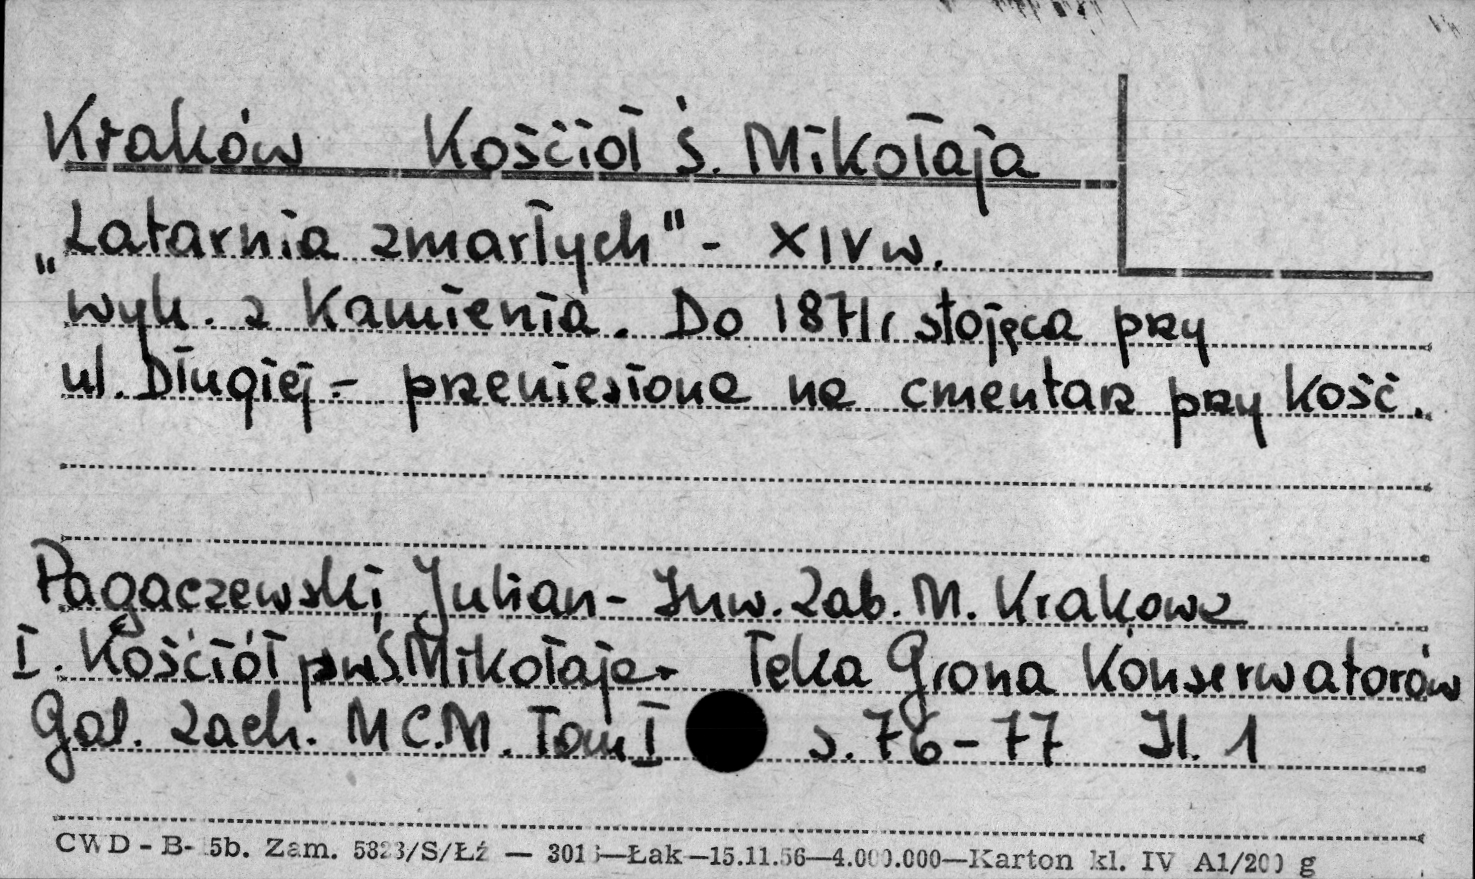 Kraków Kościół ś. Mikołaja
„Latarnia zmarłych" - XIV w.
wyk. z kamienia. Do 1871r stojąca przy
ul. Długiej - przeniesiona na cmentarz przy kość.
Pagaczewski Julian - Inw. Zab. M. Krakowa
I. Kościół pw Ś. Mikołaja - Teka Grona Konserwatorów
Gal. Zach. MCM. Tom I s. 76-77 Il. 1
CWD - B- 5b. Zam. 5823/S/Łź — 301 —Łak—15.11.56—4.000.000—Karton kl. IV A1/200 g